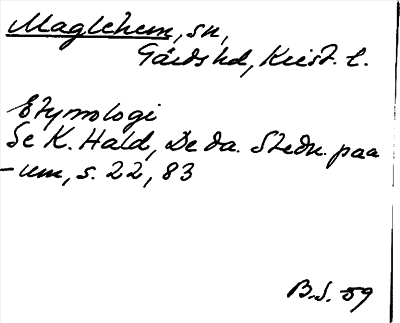 Maglehem, sn,
Gärds hd, Krist. l.
Etymologi
Se K. Hald, De da. Stedn. paa
-um, s. 22, 83
B.S. 59